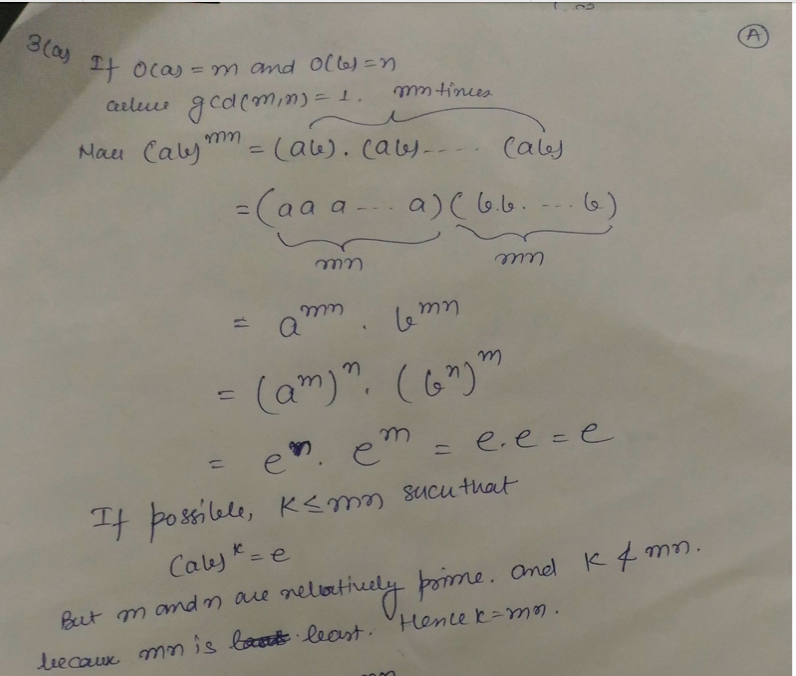 A
3(a) If O(a) = m and O(b) = n
where gcd(m,n) = 1. mn times
Now (ab)^mn = (ab). (ab) ---- (ab)
= (a a a --- a) ( b.b. --- b)
mn mn
= a^mn . b^mn
= (a^m)^n . (b^n)^m
= e^n . e^m = e.e = e
If possible, K ≤ mn such that
(ab)^k = e
But m and n are relatively prime. and K ≮ mn.
because mn is least. Hence k = mn.